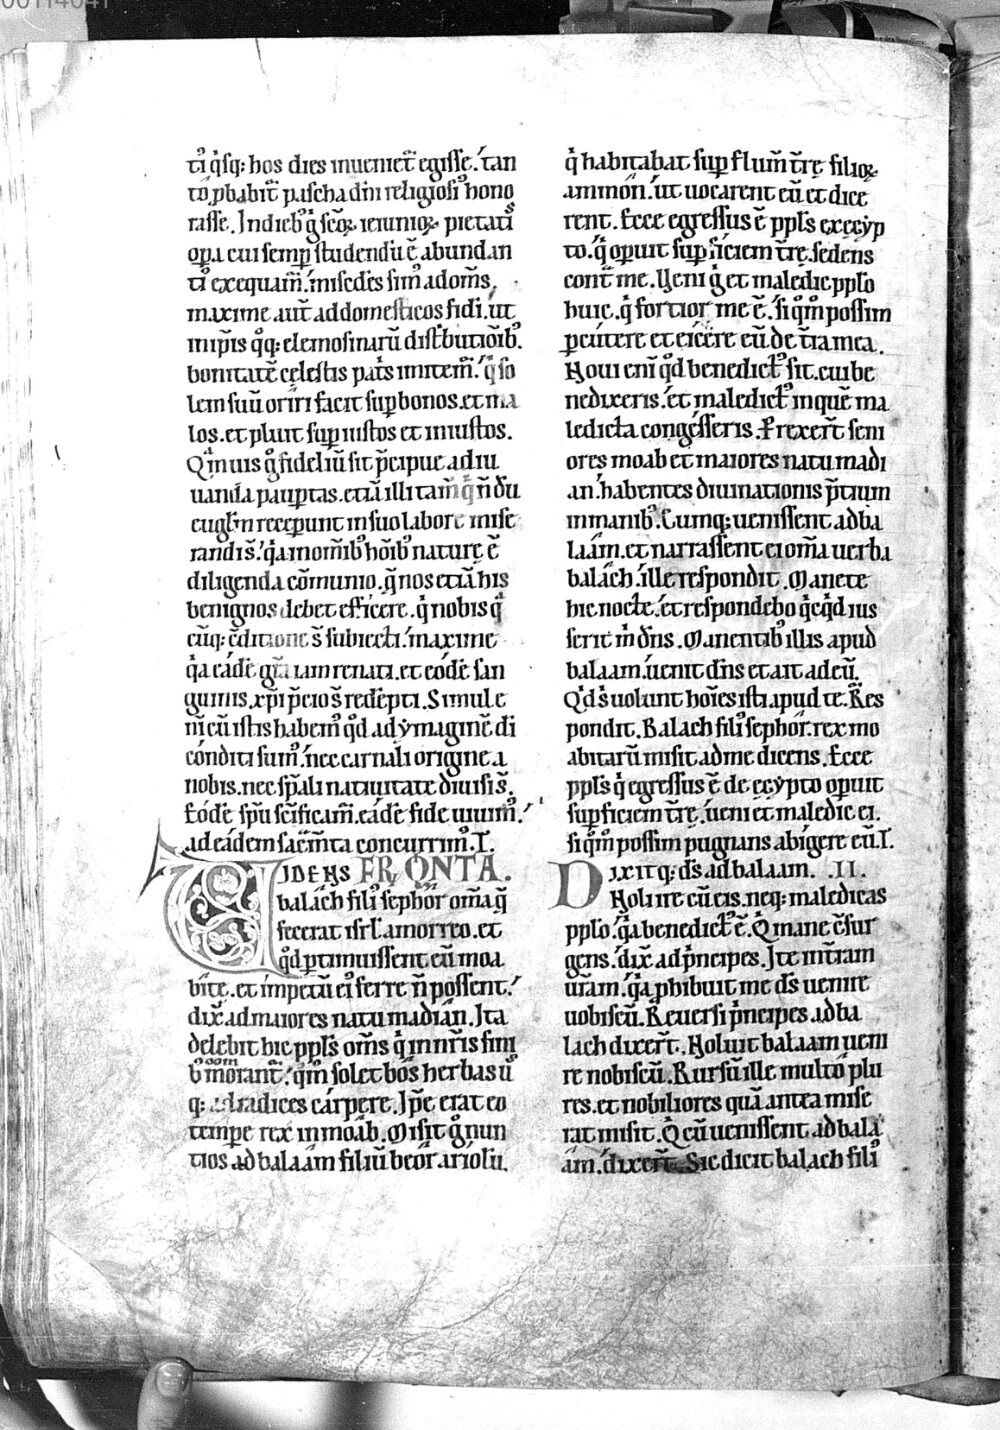 00114041
tı̄ q̊sq: hos dies inuenieť egisse. tan
to ꝓbabiť pascha dn̄i religiosi᷒ hono
rasse. In dieb᷒ g̊ scōꝝ ieiunioꝝ pietatis
oꝑa cui semꝑ studendū ē abundan
ti᷒ exequam̃. miseďes sim᷒ ad om̄s.
maxime auť ad domesticos fidi. ut
in ip̄is qq: elemosinarū distͥbutioīb᷒.
bonitatē celestis pat̄s imitem̃. qͥ so
lem suū oriri facit suꝑ bonos. et ma
los. et pluit suꝑ iustos et iniustos.
Qᷓmuis g̊ fideliū sit p̄cipue adiu
uanda pauꝑtas. etiā illi tam̄ qͥ n̄dū
euglm̄ receꝑunt in suo labore mise
randi s̄. qͥa in om̄ib᷒ hōib᷒ naturę ē
diligenda cōmunio. q̄ nos etiā his
benignos debet efficere. qͥ nobis qͣ
cūq: ꝯditione s̄ subiecti. maxime
qͥa eadē gr̄a iam renati. et eodē san
guinis xp̄i p̄cio s̄ redēpti. Simul e
nī cū istis habem᷒ qd̄ ad ymaginē di
conditi sum᷒. nec carnali origine a
nobis. nec sp̄ali natiuitate diuisi s̄.
Eodē sp̄u scīficam̃. eadē fide uiuim᷒.
ad eadem sac̄mīta concurrim᷒. I.
VIDENS FR̄ ONTA.
balach fili᷒ sephor om̄a q̄
fecerat isrl̄ amorreo. et
qd̄ ꝑtimuissent eū moa
bite. et impetū ei᷒ ferre n̄ possent.
dix̄. ad maiores natu madian. Ita
delebit hic ppl̄s om̄s qͥ in nr̄is fini
b᷒ morant᷒. qͦm̄ solet bos herbas us
q: ad radices carpere. Ip̄e erat eo
tempe rex in moab. Misit g̊ nun
tios ad balaam filiū beor ariolū.
qͥ habitabat suꝑ flum̄ tr̄ę filioꝝ
ammon. ut uocarent eū et dice
rent. Ecce egressus ē ppl̄s ex egyp
to. qͥ oꝑuit suꝑficiem tr̄ę. sedens
cont̄ me. Veni g̊ et maledic pplo
huic. qͥ fortior me ē. si qͦm̄ possim
ꝑcutere et eicere eū de tr̄a mea.
Noui eni qd̄ benedict᷒ sit. cui be
nedixeris. et maledict᷒ in quē ma
ledicta congesseris. Prexer̄t seni
ores moab et maiores natu madi
an. habentes diuinationis p̄tium
in manib᷒. Cumq: uenissent ad ba
laam. et narrassent ei om̄a uerba
balach. ille respondit. Manete
hic nocte. et respondebo qͥcqͥd ius
serit m̄ dn̄s. Manentib᷒ illis apud
balaam. uenit dn̄s et ait ad eū.
Qͥd s̄ uolunt hoīes isti apud te. Res
pondit. Balach fili᷒ sephor. rex mo
abitarū misit ad me dicens. Ecce
ppl̄s qͥ egressus ē de egypto oꝑuit
suꝑficiem tr̄ę. ueni et maledic ei.
si qͦm̄ possim pugnans abigere eū. I.
Dixitq: ds̄ ad balaam. .II.
Noli ire cū eis. neq: maledicas
pplo. qͥa benedict᷒ ē. Q mane ꝯsur
gens. dix̄. ad p̄ncipes. Ite in tr̄am
ur̄am. qͥa ꝓhibuit me ds̄ uenire
uobiscū. Reuersi p̄ncipes ad ba
lach dixer̄t. Noluit balaam ueni
re nobiscū. Rursū ille multo plu
res. et nobiliores quā antea mise
rat misit. Qͥ cū uenissent ad bala
am. dixer̄t. Sic dicit balach fili᷒